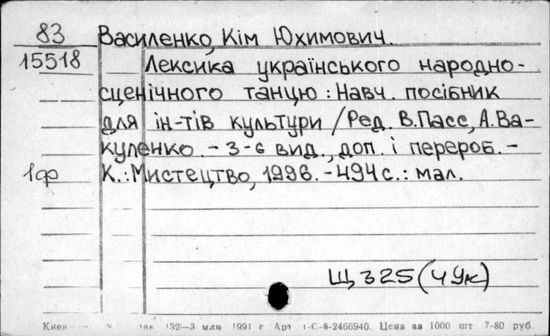 83 Василенко, Кім Юхимович.
15518 Лексика українського народно-
сценічного танцю : Навч. посібник
для ін-тів культури / Ред. В. Пасє, А. Ва-
куленко. - 3-є вид., доп. і перероб. -
1дф К. : Мистецтво, 1996. - 494 с. : мал.
Щ 325 (4 Ук)
132—3 млн 1991 г С-8-2466940. Цена за 1000 шт 7-80 руб.